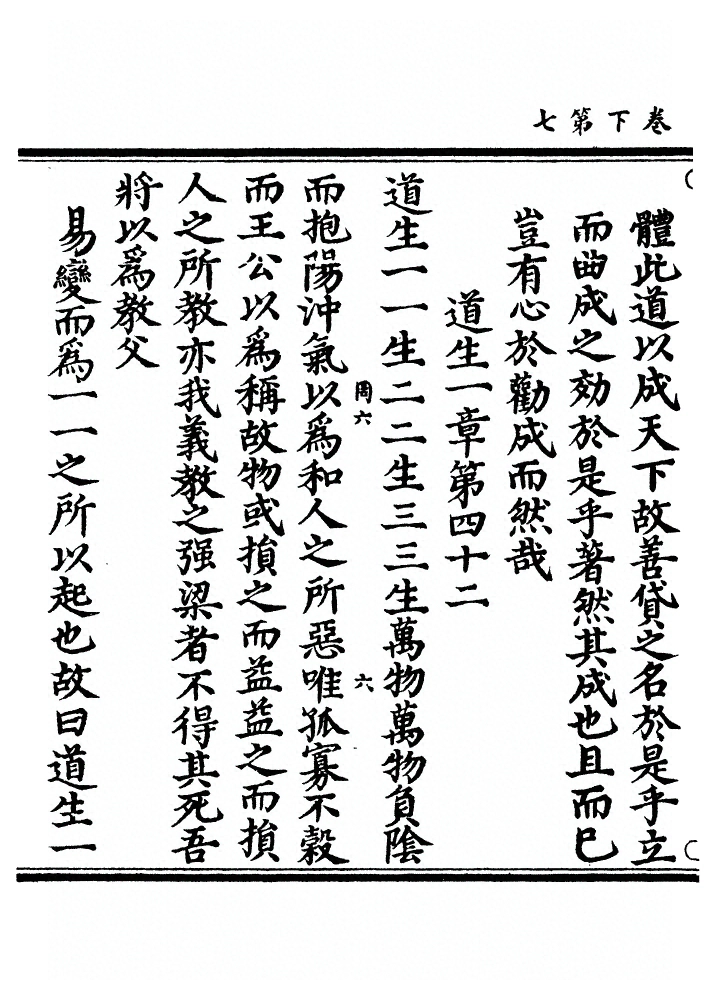 卷下第七
體此道以成天下故善貸之名於是乎立
而曲成之効於是乎著然其成也且而已
豈有心於勸成而然哉
道生一章第四十二
道生一一生二二生三三生萬物萬物負陰
而抱陽沖氣以爲和人之所惡唯孤寡不穀
周六
六
而王公以爲稱故物或損之而益益之而損
人之所教亦我義教之强梁者不得其死吾
將以爲教父
易變而爲一一之所以起也故曰道生一